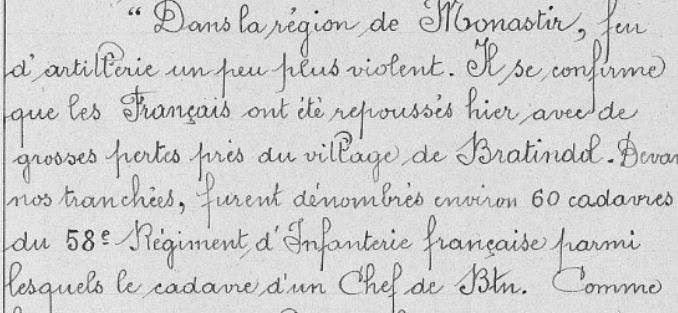 “ Dans la région de Monastir, feu
d'artillerie un peu plus violent. Il se confirme
que les Français ont été repoussés hier avec de
grosses pertes près du village de Bratindol. Devan
nos tranchées, furent dénombrés environ 60 cadavres
du 58e Régiment d'Infanterie française parmi
lesquels le cadavre d'un Chef de Btn. Comme